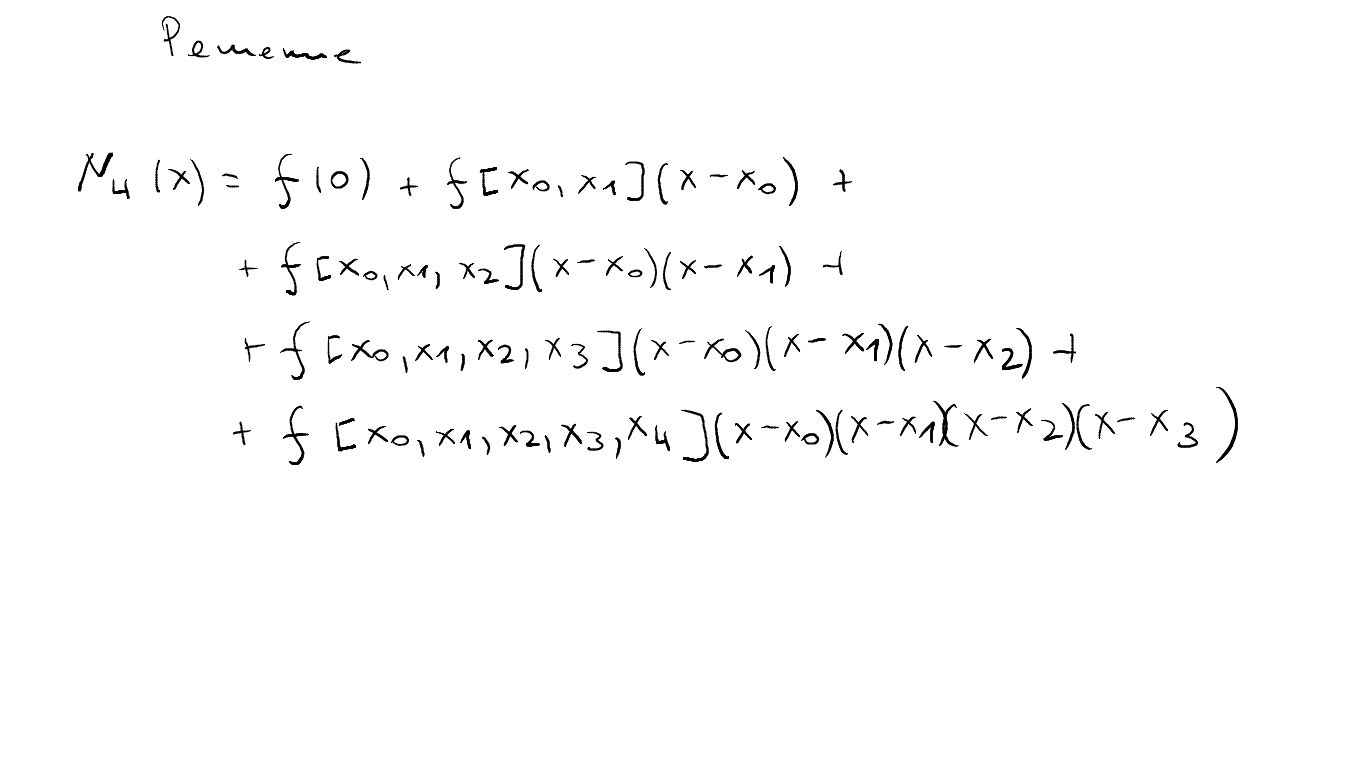 Решение
N₄(x) = f(0) + f[x₀, x₁](x - x₀) +
+ f[x₀, x₁, x₂](x - x₀)(x - x₁) +
+ f[x₀, x₁, x₂, x₃](x - x₀)(x - x₁)(x - x₂) +
+ f[x₀, x₁, x₂, x₃, x₄](x - x₀)(x - x₁)(x - x₂)(x - x₃)